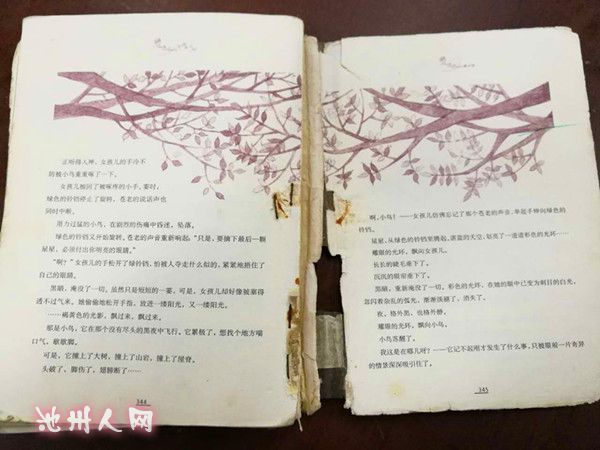 正听得入神，女孩儿的手冷不
防被小鸟重重啄了一下。
女孩儿缩回了被啄疼的小手，霎时，
绿色的铃铛停止了旋转，苍老的说话声也
同时中断。
用力过猛的小鸟，在剧烈的伤痛中昏迷，坠落。
绿色的铃铛又开始旋转，苍老的声音重新响起：“只是，要摘下最后一颗
星星，必须付出你明亮的眼睛。”
“啊？”女孩儿的手松开了绿铃铛，恰被人夺走什么似的，紧紧地捂住了
自己的眼睛。
黑暗，淹没了一切，虽然只是短短的一霎，可是，女孩儿却好像被塞得
透不过气来。她偷偷地松开手指，放进一缕阳光，又一缕阳光。
……褐黄色的光影，飘过来，飘过来。
那是小鸟，它在那个没有尽头的黑夜中飞行。它累极了，想找个地方喘
口气，歇歇脚。
可是，它撞上了大树，撞上了山岩，撞上了屋脊。
头破了，脚伤了，翅膀断了……
344
啊，小鸟！——女孩儿仿佛忘记了那个苍老的声音，举起手伸向绿色的
铃铛。
星星，从绿色的铃铛里腾起，湛蓝的天空，划亮了一道道彩色的光环……
耀眼的光环，飘向女孩儿。
长长的睫毛垂下了。
沉沉的眼帘垂下了。
黑暗，重新淹没了一切，彩色的光环，在她的眼中已变为刺目的白光，
忽闪着杂乱的弧光，渐渐淡褪了，消失了。
夜，格外黑，也格外静。
耀眼的光环，飘向小鸟。
小鸟苏醒了。
我这是在哪儿呀？——它记不起刚才发生了什么事，只被眼前一片奇异
的情景深深吸引住了。
345
池州人网